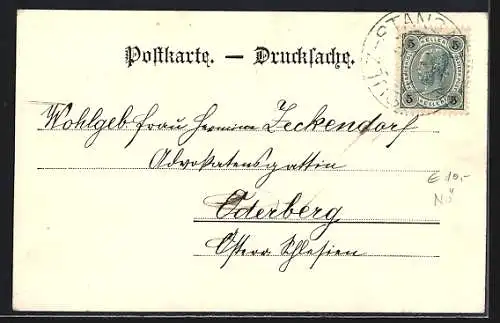 Postkarte. — Drucksache.
STANZ
5 HELLER 5
5 HELLER 5
Wohlgeb Frau Hermine Zeckendorf
Advokatensgattin
Oderberg
Österr Schlesien
€ 10,-
NÖ